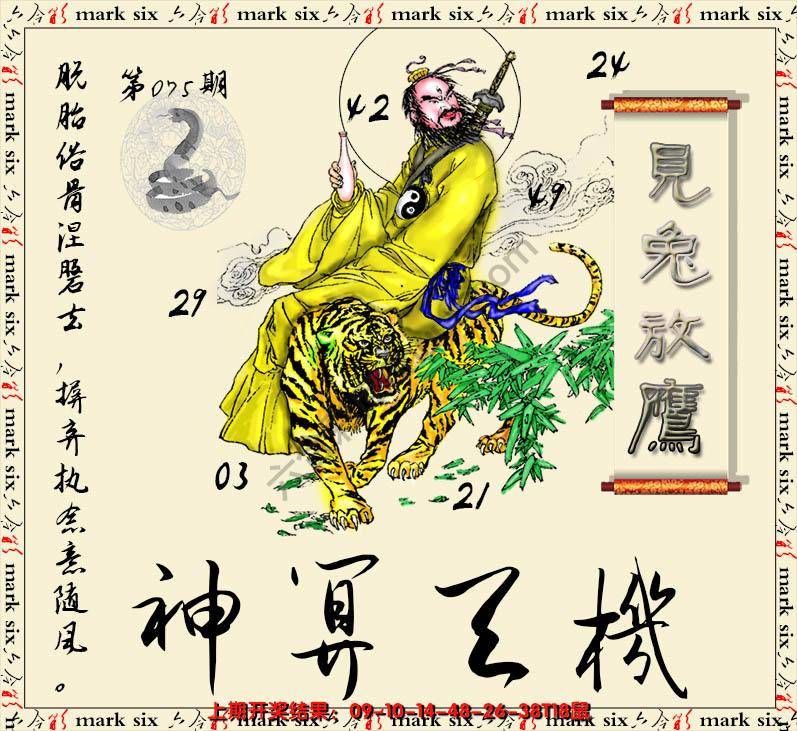 mark six 六合彩 mark six 六合彩 mark six 六合彩 mark six 六合彩 mark six
第075期
脱胎俗骨涅磐去，摒弃执念意随风。
42
24
49
29
03
21
見兔放鷹
神算天機
上期开奖结果：09-10-14-48-26-38T18鼠